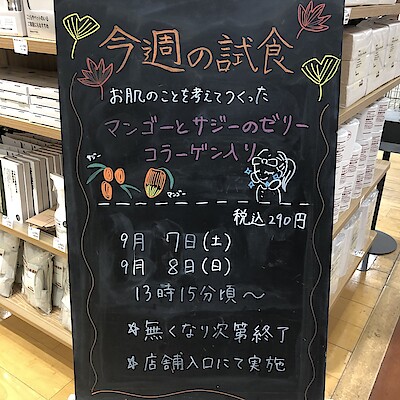 今週の試食
お肌のことを考えてつくった
マンゴーとサジーのゼリー
コラーゲン入り
サジー
マンゴー
税込290円
9月 7日(土)
9月 8日(日)
13時15分頃〜
☆無くなり次第終了
☆店舗入口にて実施